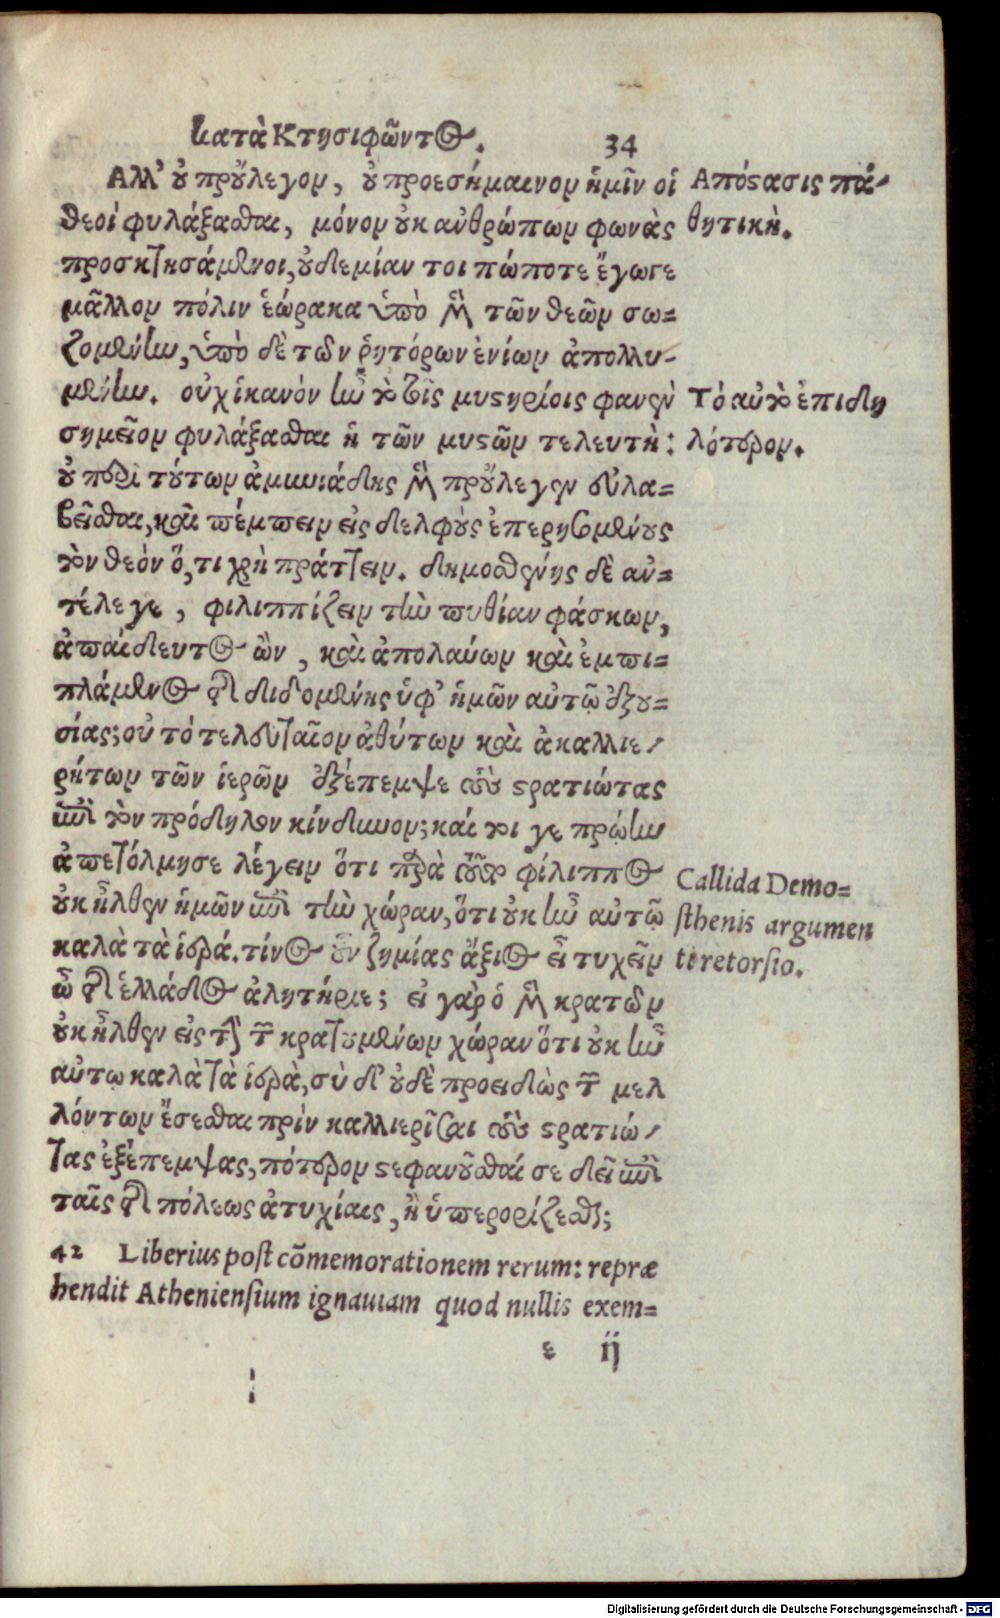 κατὰ Κτησιφῶντος. 34
Ἀλλ' οὐ προὔλεγον, οὐ προεσήμαινον ἡμῖν οἱ
θεοὶ φυλάξασθαι, μόνον οὐκ ἀνθρώπων φωνὰς
προσκτησάμενοι, οὐδεμίαν τοι πώποτε ἔγωγε
μᾶλλον πόλιν ἑώρακα ὑπὸ μὲν τῶν θεῶν σω=
ζομένην, ὑπὸ δὲ τῶν ῥητόρων ἐνίων ἀπολλυ-
μένην. οὐχ ἱκανὸν ἦν τὸ τοῖς μυστηρίοις φανὲν
σημεῖον φυλάξασθαι ἡ τῶν μυστῶν τελευτὴ:
οὐ περὶ τούτων ἀμυνιάδης μὲν προὔλεγεν εὐλα=
βεῖσθαι, καὶ πέμπειν εἰς δελφοὺς ἐπερησομένους
τὸν θεὸν ὅ, τι χρὴ πράττειν. δημοσθένης δὲ ἀν=
τέλεγε, φιλιππίζειν τὴν πυθίαν φάσκων,
ἀπαίδευτος ὢν, καὶ ἀπολαύων καὶ ἐμπι=
πλάμενος τῆς διδομένης ὑφ' ἡμῶν αὐτῷ ἐξου=
σίας; οὐ τὸ τελευταῖον ἀθύτων καὶ ἀκαλλιε-
ρήτων τῶν ἱερῶν ἐξέπεμψε τοὺς στρατιώτας
ἐπὶ τὸν πρόδηλον κίνδυνον; καί τοι γε πρώην
ἀπετόλμησε λέγειν ὅτι παρὰ τοῦτο φίλιππος
οὐκ ἦλθεν ἡμῶν ἐπὶ τὴν χώραν, ὅτι οὐκ ἦν αὐτῷ
καλὰ τὰ ἱερά. τίνος οὖν ζημίας ἄξιος εἶ τυχεῖν
ὦ τῆς ἑλλάδος ἀλητήριε; εἰ γὰρ ὁ μὲν κρατῶν
οὐκ ἦλθεν εἰς τὴν τῶν κρατουμένων χώραν ὅτι οὐκ ἦν
αὐτῳ καλὰ τὰ ἱερὰ, σὺ δ' οὐδὲ προειδὼς τῶν μελ
λόντων ἔσεσθαι πρὶν καλλιερῖσαι τοὺς στρατιώ-
τας ἐξέπεμψας, πότερον στεφανοῦσθαί σε δεῖ ἐπὶ
ταῖς τῆς πόλεως ἀτυχίαις, ἢ ὑπερορίζεσθαι;
42 Liberius post cōmemorationem rerum: repræ
hendit Atheniensium ignauiam quod nullis exem=
e ij
Ἀπόστασις πα-
θητικὴ.
Τὸ αὐτὸ ἐπιδη
λότερον.
Callida Demo=
sthenis argumen
ti retorsio.
Digitalisierung gefördert durch die Deutsche Forschungsgemeinschaft - DFG